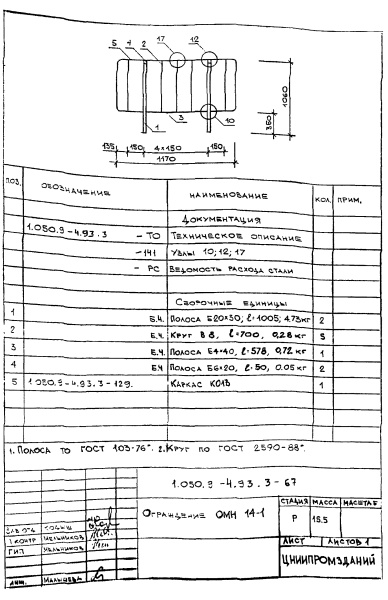 5 4 2 17 12
1060
350
3 1 10
135 150 4×150 150
1170
ПОЗ. ОБОЗНАЧЕНИЕ НАИМЕНОВАНИЕ КОЛ. ПРИМ.
ДОКУМЕНТАЦИЯ
1.050.9-4.93.3 -ТО ТЕХНИЧЕСКОЕ ОПИСАНИЕ
-141 УЗЛЫ 10; 12; 17
-РС ВЕДОМОСТЬ РАСХОДА СТАЛИ
СБОРОЧНЫЕ ЕДИНИЦЫ
1 Б.Ч. ПОЛОСА Б20×30, ℓ=1005; 4.73кг 2
2 Б.Ч. КРУГ В8, ℓ=700, 0,28 кг 5
3 Б.Ч. ПОЛОСА Б4×40, ℓ=578, 0,72 кг 1
4 Б.Ч ПОЛОСА Б6×20, ℓ=50, 0.05 кг 2
5 1.050.9-4.93.3-129. КАРКАС КО13 1
1. ПОЛОСА ПО ГОСТ 103-76*. 2. КРУГ ПО ГОСТ 2590-88*.
1.050.9-4.93.3-67
ОГРАЖДЕНИЕ ОМН 14-1
СТАДИЯ МАССА МАСШТАБ
Р 15.5
ЛИСТ ЛИСТОВ 1
ЦНИИПРОМЗДАНИЙ
ЗАВ ОТД
Н КОНТР МЕЛЬНИКОВ
ГИП МЕЛЬНИКОВ
ИНЖ. МАЛЫШЕВА